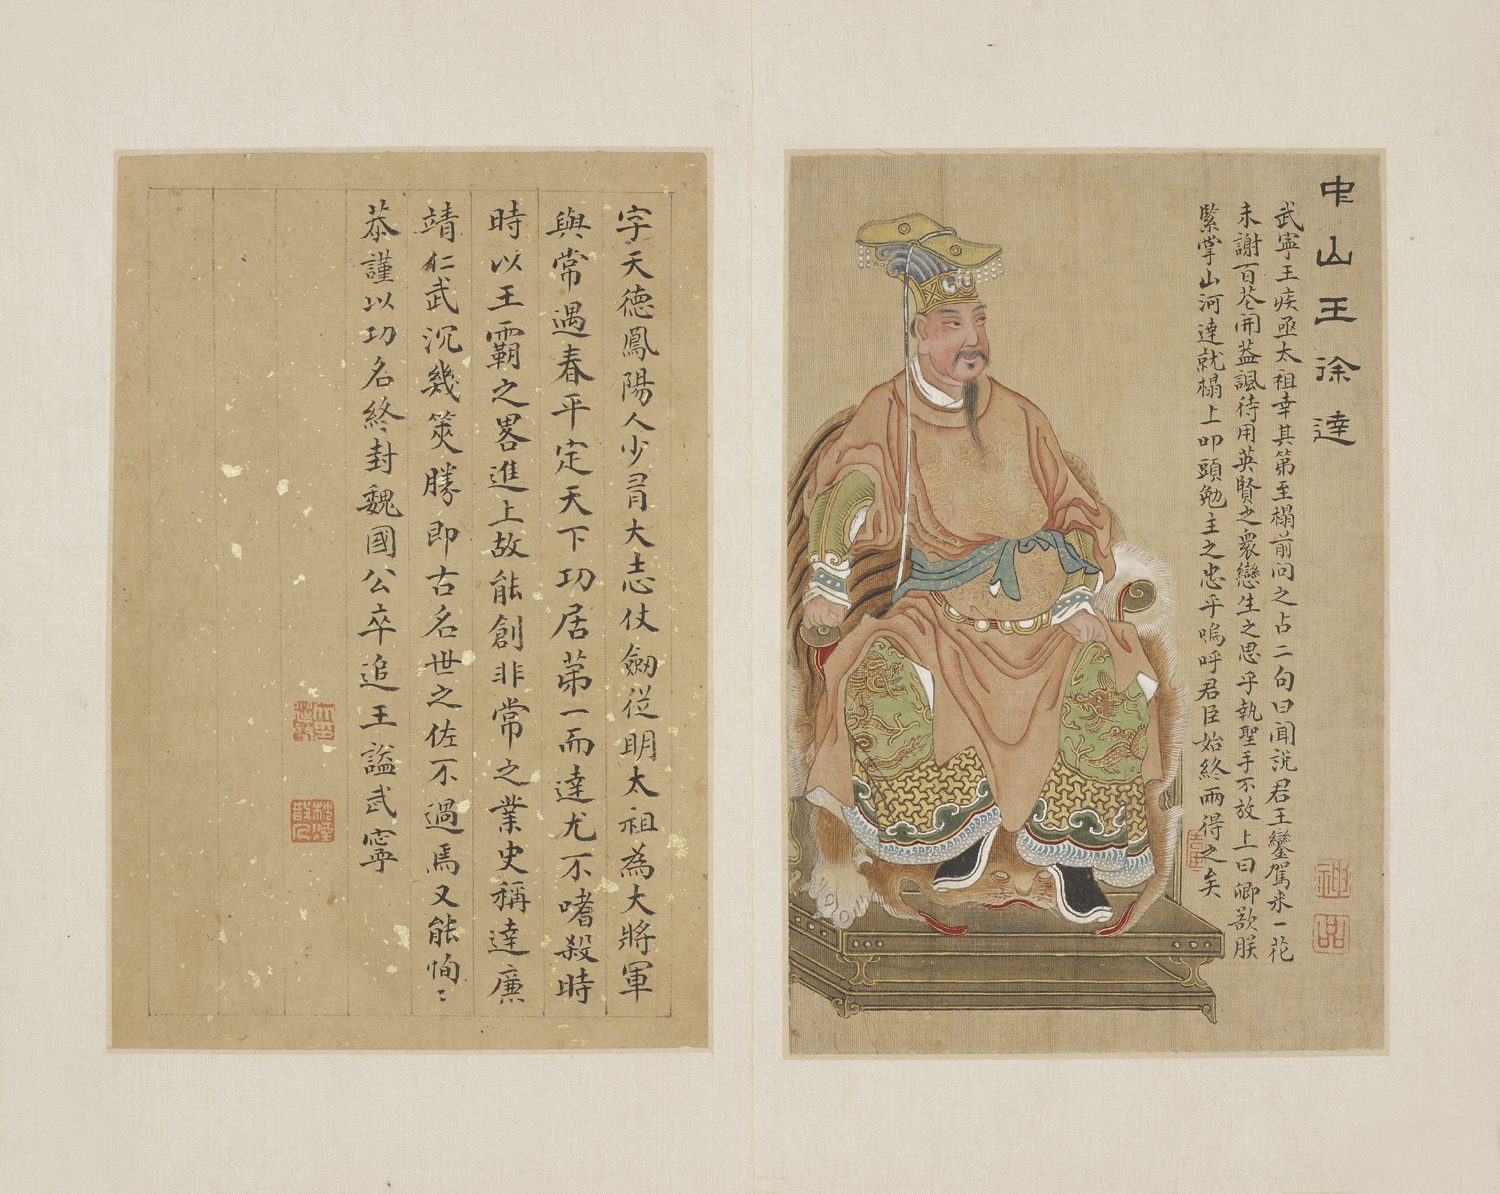 中山王徐達
武寧王疾亟太祖幸其第至榻前问之占二句曰闻説君王鑾駕来一花
未謝百花開葢諷待用英賢之衆戀生之思乎執聖手不放上曰卿歆朕
緊掌山河達就榻上叩頭勉主之忠乎嗚呼君臣始終兩得之矣
字天德鳳陽人少有大志仗劒從明太祖為大將軍
與常遇春平定天下功居第一而達尤不嗜殺時
時以王霸之畧進上故能創非常之業史稱達廉
靖仁武沉幾筴勝即古名世之佐不過焉又能恂〻
恭謹以功名終封魏國公卒追王謚武寧